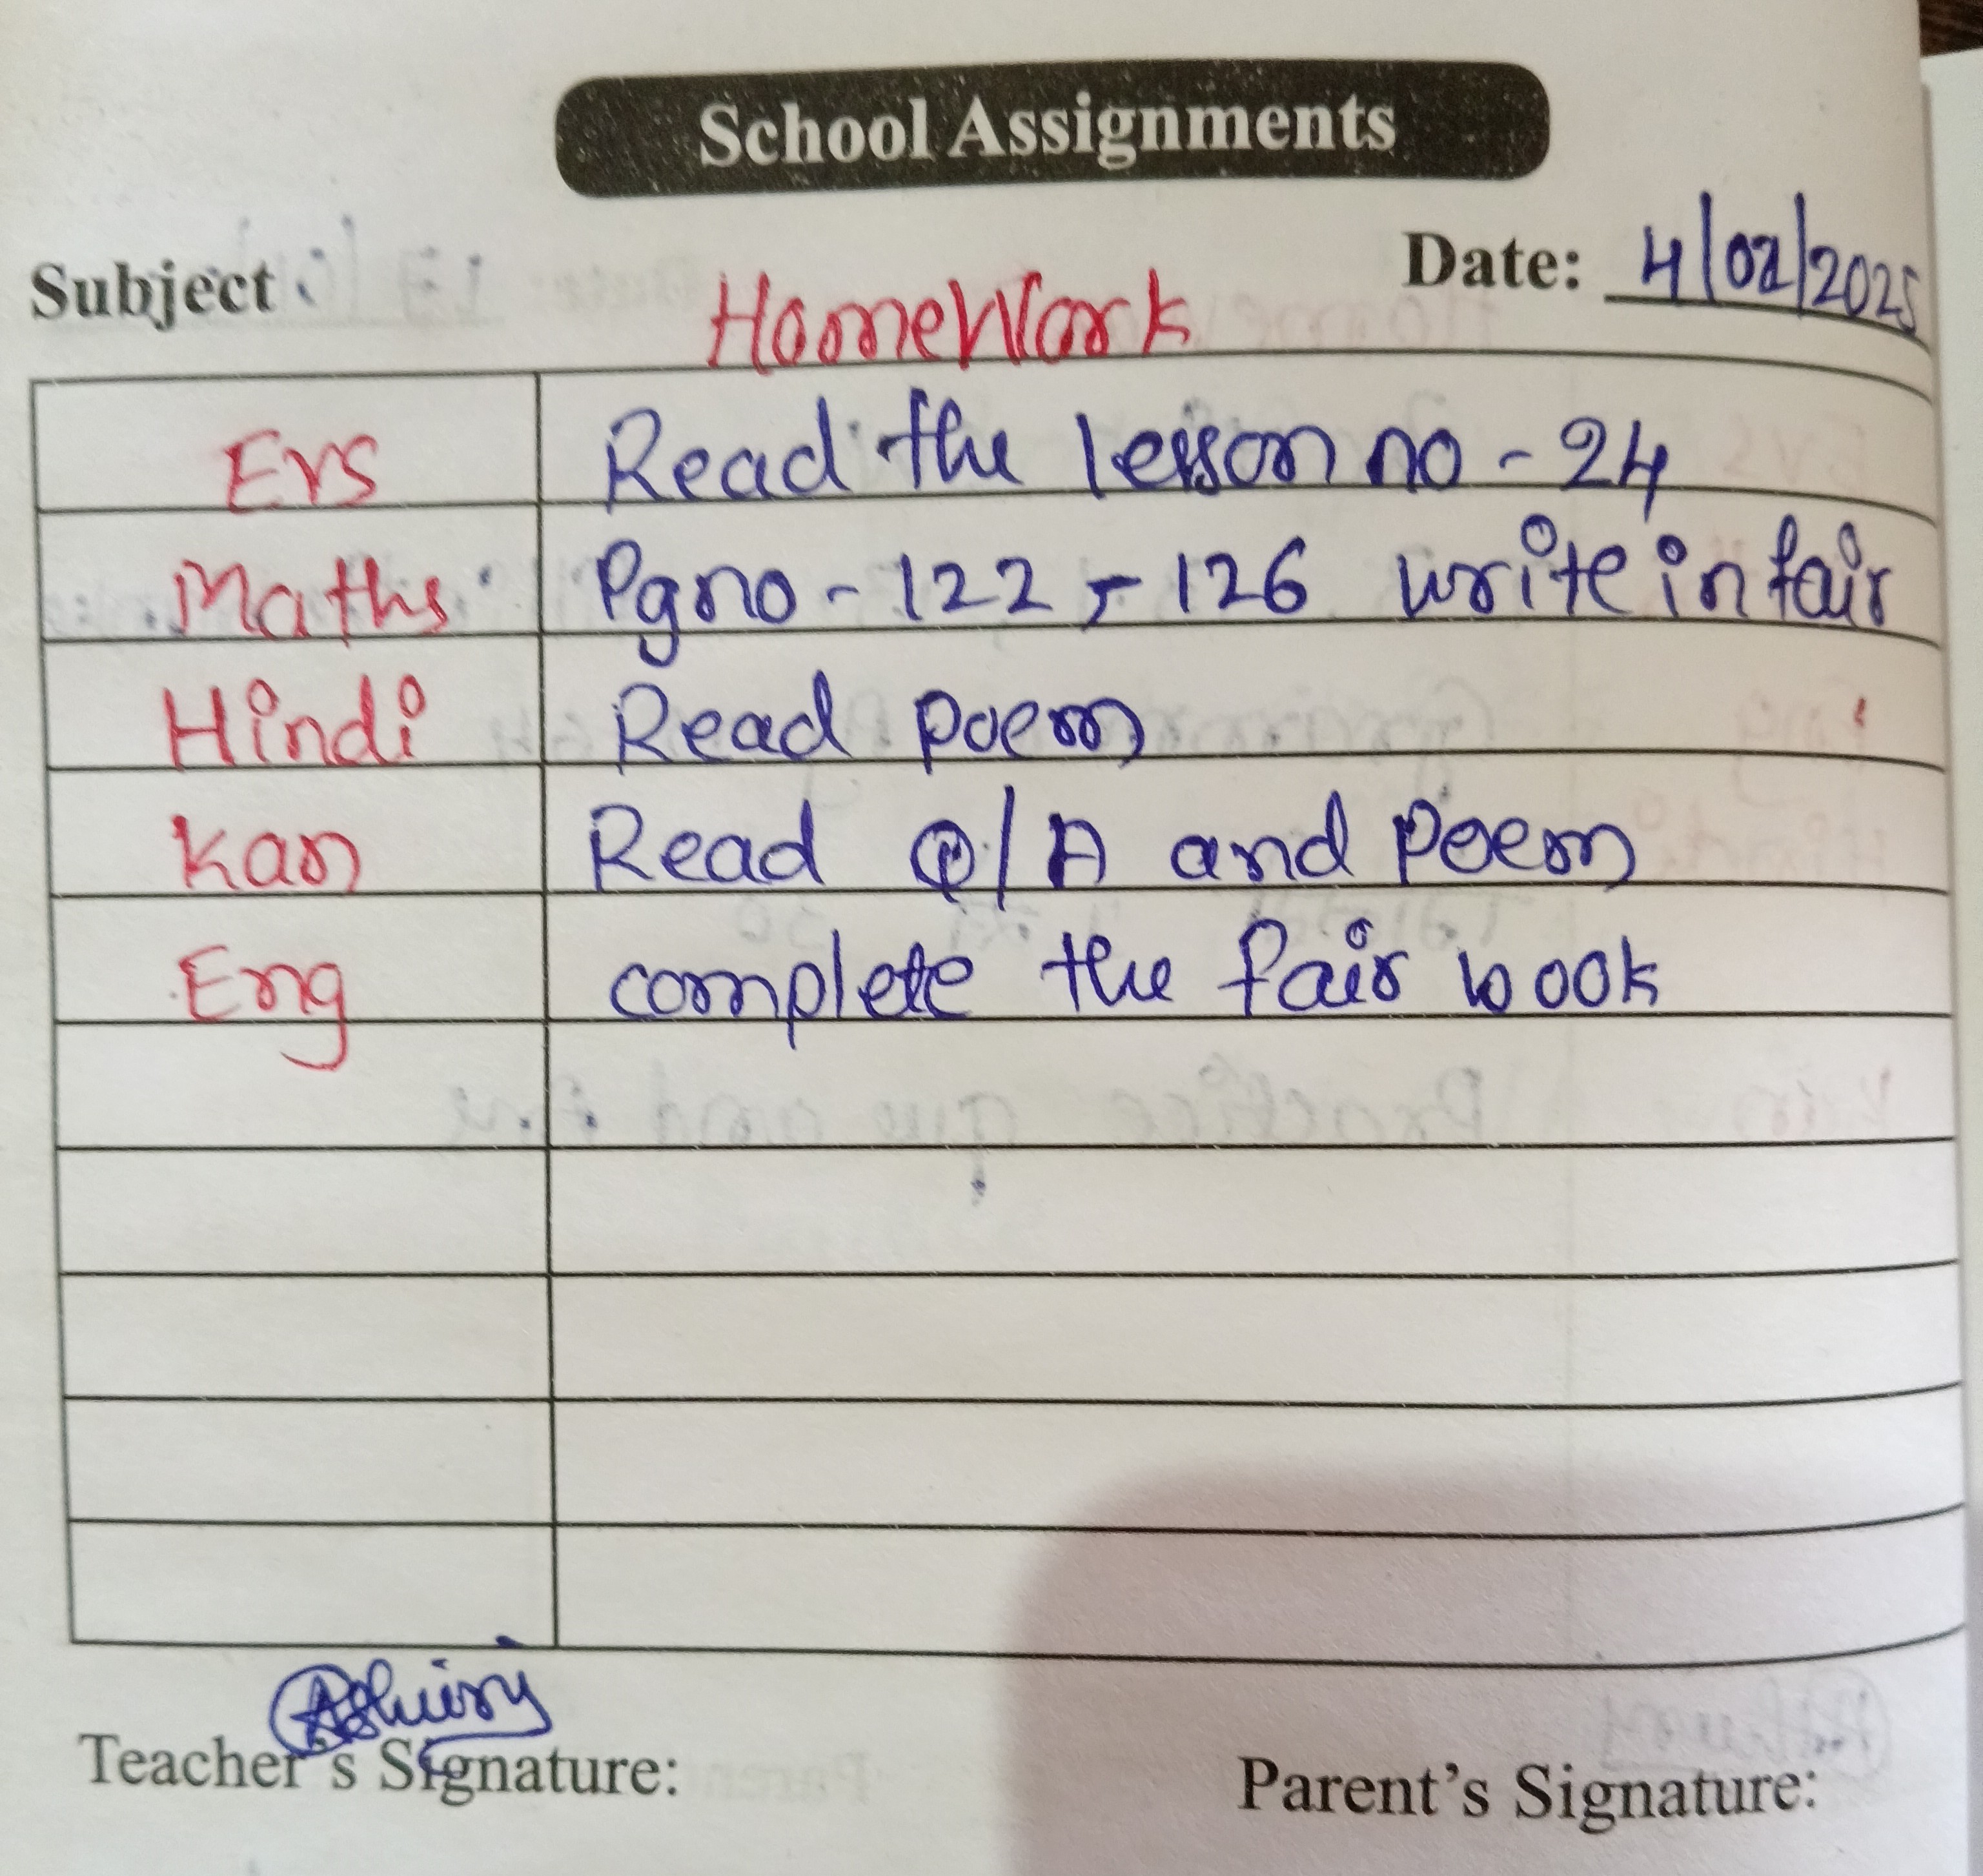 School Assignments
Subject : Date: 4/02/2025
HomeWork
Evs Read the lesson no - 24
Maths Pg no - 122 - 126 write in fair
Hindi Read poem
Kan Read Q/A and Poem
Eng complete the fair book
Teacher's Signature:
Parent's Signature: